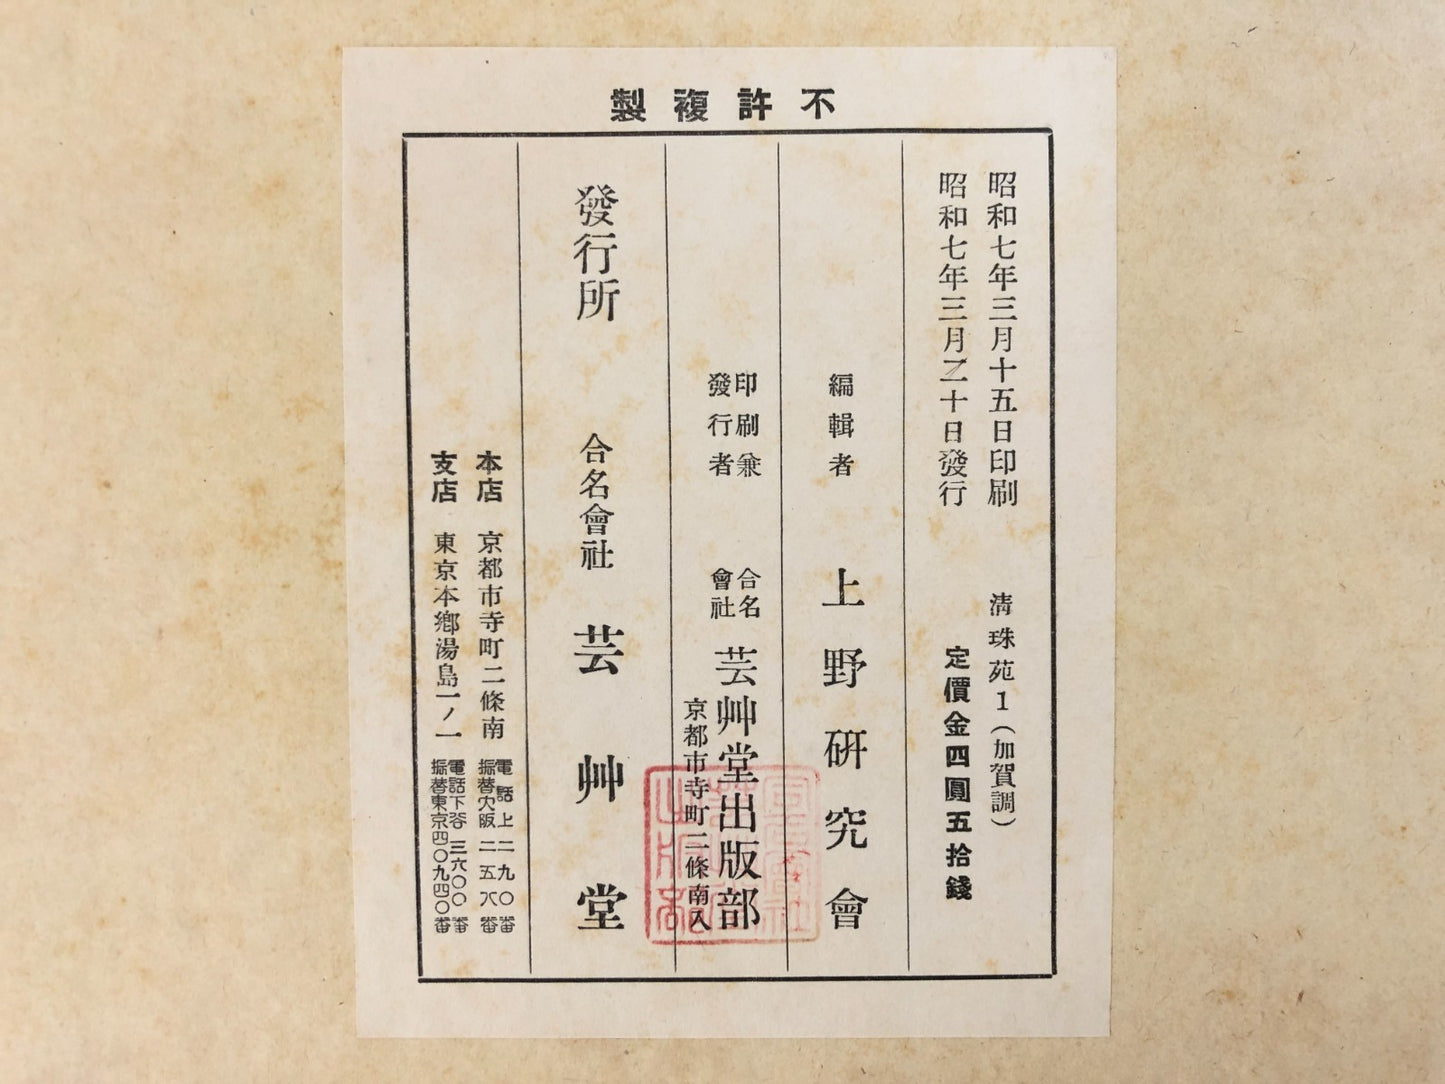 不許複製
昭和七年三月十五日印刷
昭和七年三月二十日發行
清珠苑1(加賀調)
定價金四圓五拾錢
編輯者
上野硏究會
印刷兼
發行者
合名
會社
芸艸堂出版部
京都市寺町二條南入
發行所
合名會社
芸艸堂
本店
京都市寺町二條南
電話上二九〇番
振替大阪二五八番
支店
東京本鄕湯島一ノ一
電話下谷三六〇〇番
振替東京四〇九四〇番